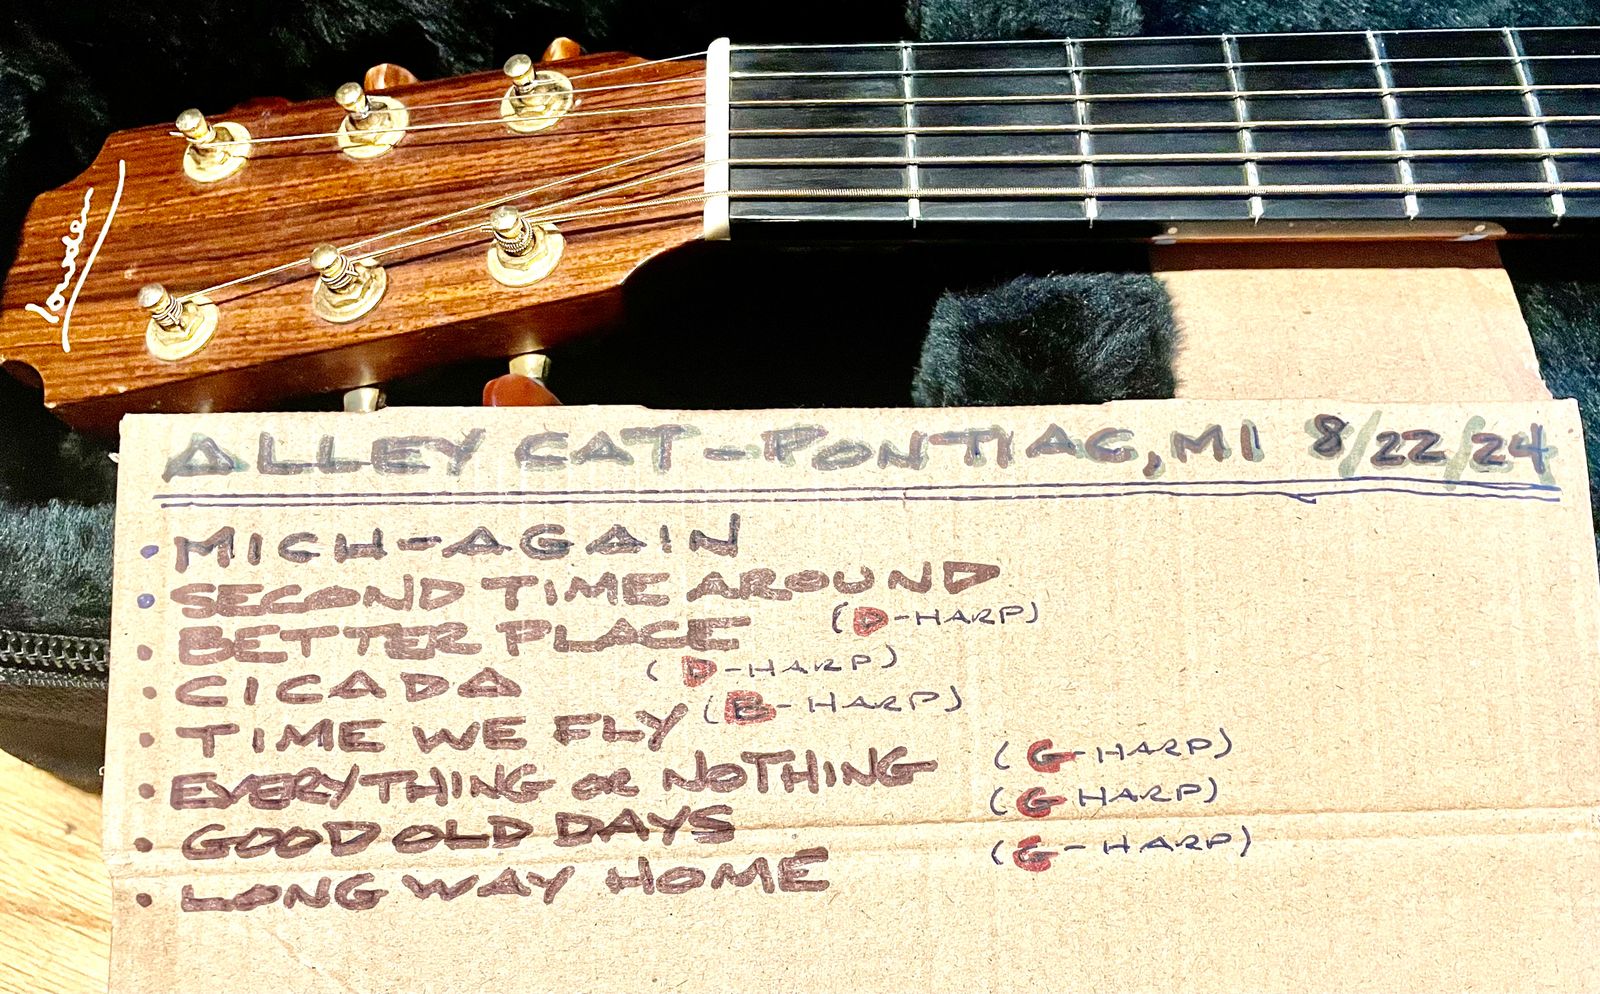 Lowden
ALLEY CAT - PONTIAC, MI 8/22/24
• MICH-AGAIN
• SECOND TIME AROUND
• BETTER PLACE (D-HARP)
• CICADA (D-HARP)
• TIME WE FLY (B-HARP)
• EVERYTHING OR NOTHING (G-HARP)
• GOOD OLD DAYS (G HARP)
• LONG WAY HOME (G-HARP)